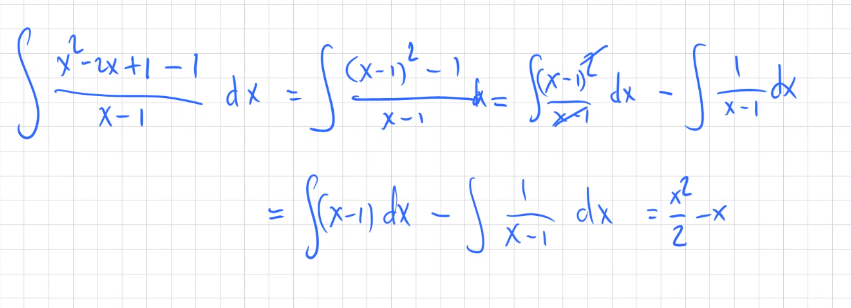 ∫ (x²-2x+1-1)/(x-1) dx = ∫ ((x-1)²-1)/(x-1) dx = ∫ (x-1)²/(x-1) dx - ∫ 1/(x-1) dx
= ∫(x-1) dx - ∫ 1/(x-1) dx = x²/2 - x